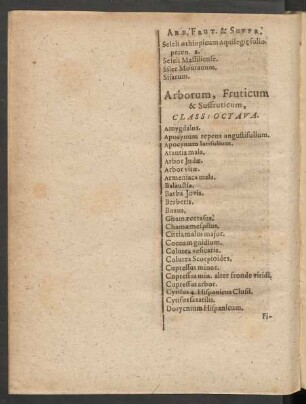 ARB. FRUT. & SUFFR.
Seseli æthiopicum Aquilegiæ folio
peren. 2.
Seseli Massiliense.
Siler Montanum.
Sisarum.
Arborum, Fruticum
& Suffruticum,
CLASSIS OCTAVA.
Amygdalus.
Apocynum repens angustifolium.
Apocynum latifolium.
Arantia mala.
Arbor Judæ.
Arbor vitæ.
Armeniaca mala.
Balaustia.
Barba Jovis.
Berberis.
Buxus.
Chamæcerasus.
Chamæmespilus.
Citria malus major.
Coccum gnidium.
Colutea vesicaria.
Colutea Scorpioides.
Cupressus minor.
Cupressus min. alter fronde viridi.
Cupressus arbor.
Cytisus 4. Hispanicus Clusii.
Cytisus
Dorycnium Hispanicum.
Fi-